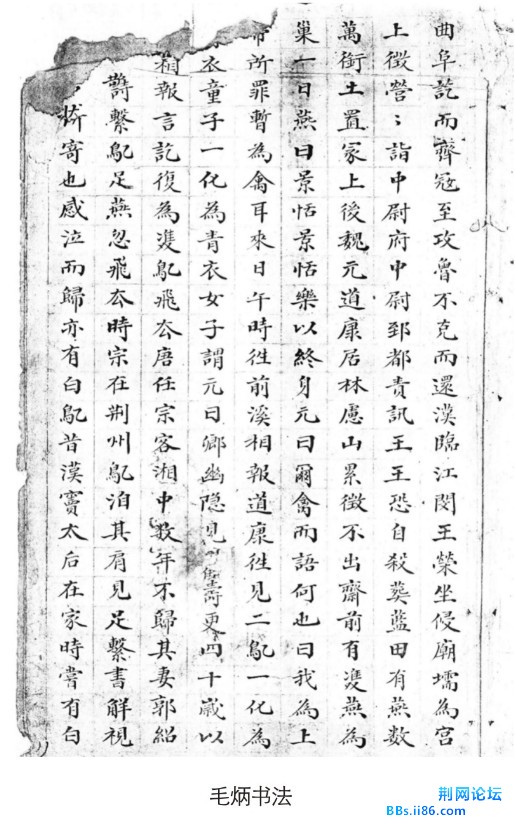 曲阜訖而齊寇至攻魯不克而還漢臨江閔王榮坐侵廟壖為宮
上徵營〻詣中尉府中尉郅都責訊王王恐自殺葬藍田有燕數
萬銜土置冢上後魏元道康居林慮山累徵不出齋前有雙燕為
巢一日燕曰景恬景恬樂以終身元曰爾禽而語何也曰我為上
帝所罪暫為禽耳來日午時徃前溪相報道康徃見二鳦一化為
衣童子一化為青衣女子謂元曰卿幽隐見壽更四十歲以
相報言訖復為雙鳦飛去唐任宗客湘中数年不歸其妻郭紹
繫鳦足燕忽飛去時宗在荆州鳦泊其肩見足繫書解視
寄也感泣而歸亦有白鳦昔漢竇太后在家時嘗有白
毛炳书法
荆网论坛
BBs.ii86.com